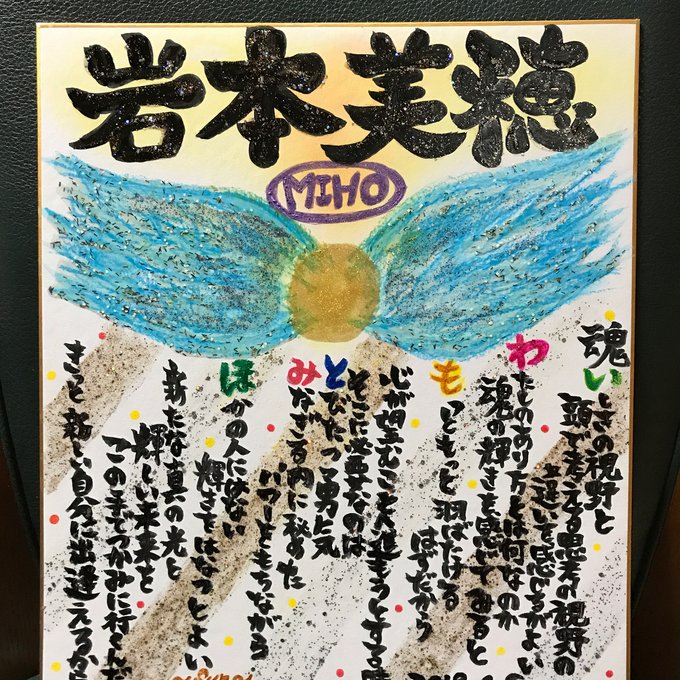 岩本美穂
MIHO
魂
いしきの視野と
頭で考える思考の視野の
違いを感じるがよい
わたしのあり方とは何なのか
魂の輝きを感じてみると
もっともっと羽ばたける
はずだから
心が望むことへ進もうとする時
そこに必要なのは
とびたつ勇気
みなぎる内に秘めた
パワーをもちながら
ほかの人にはない
輝きをはなつとよい
新たな真の光と
輝しい未来を
この手でつかみに行くんだ
きっと新しい自分に出逢えるから